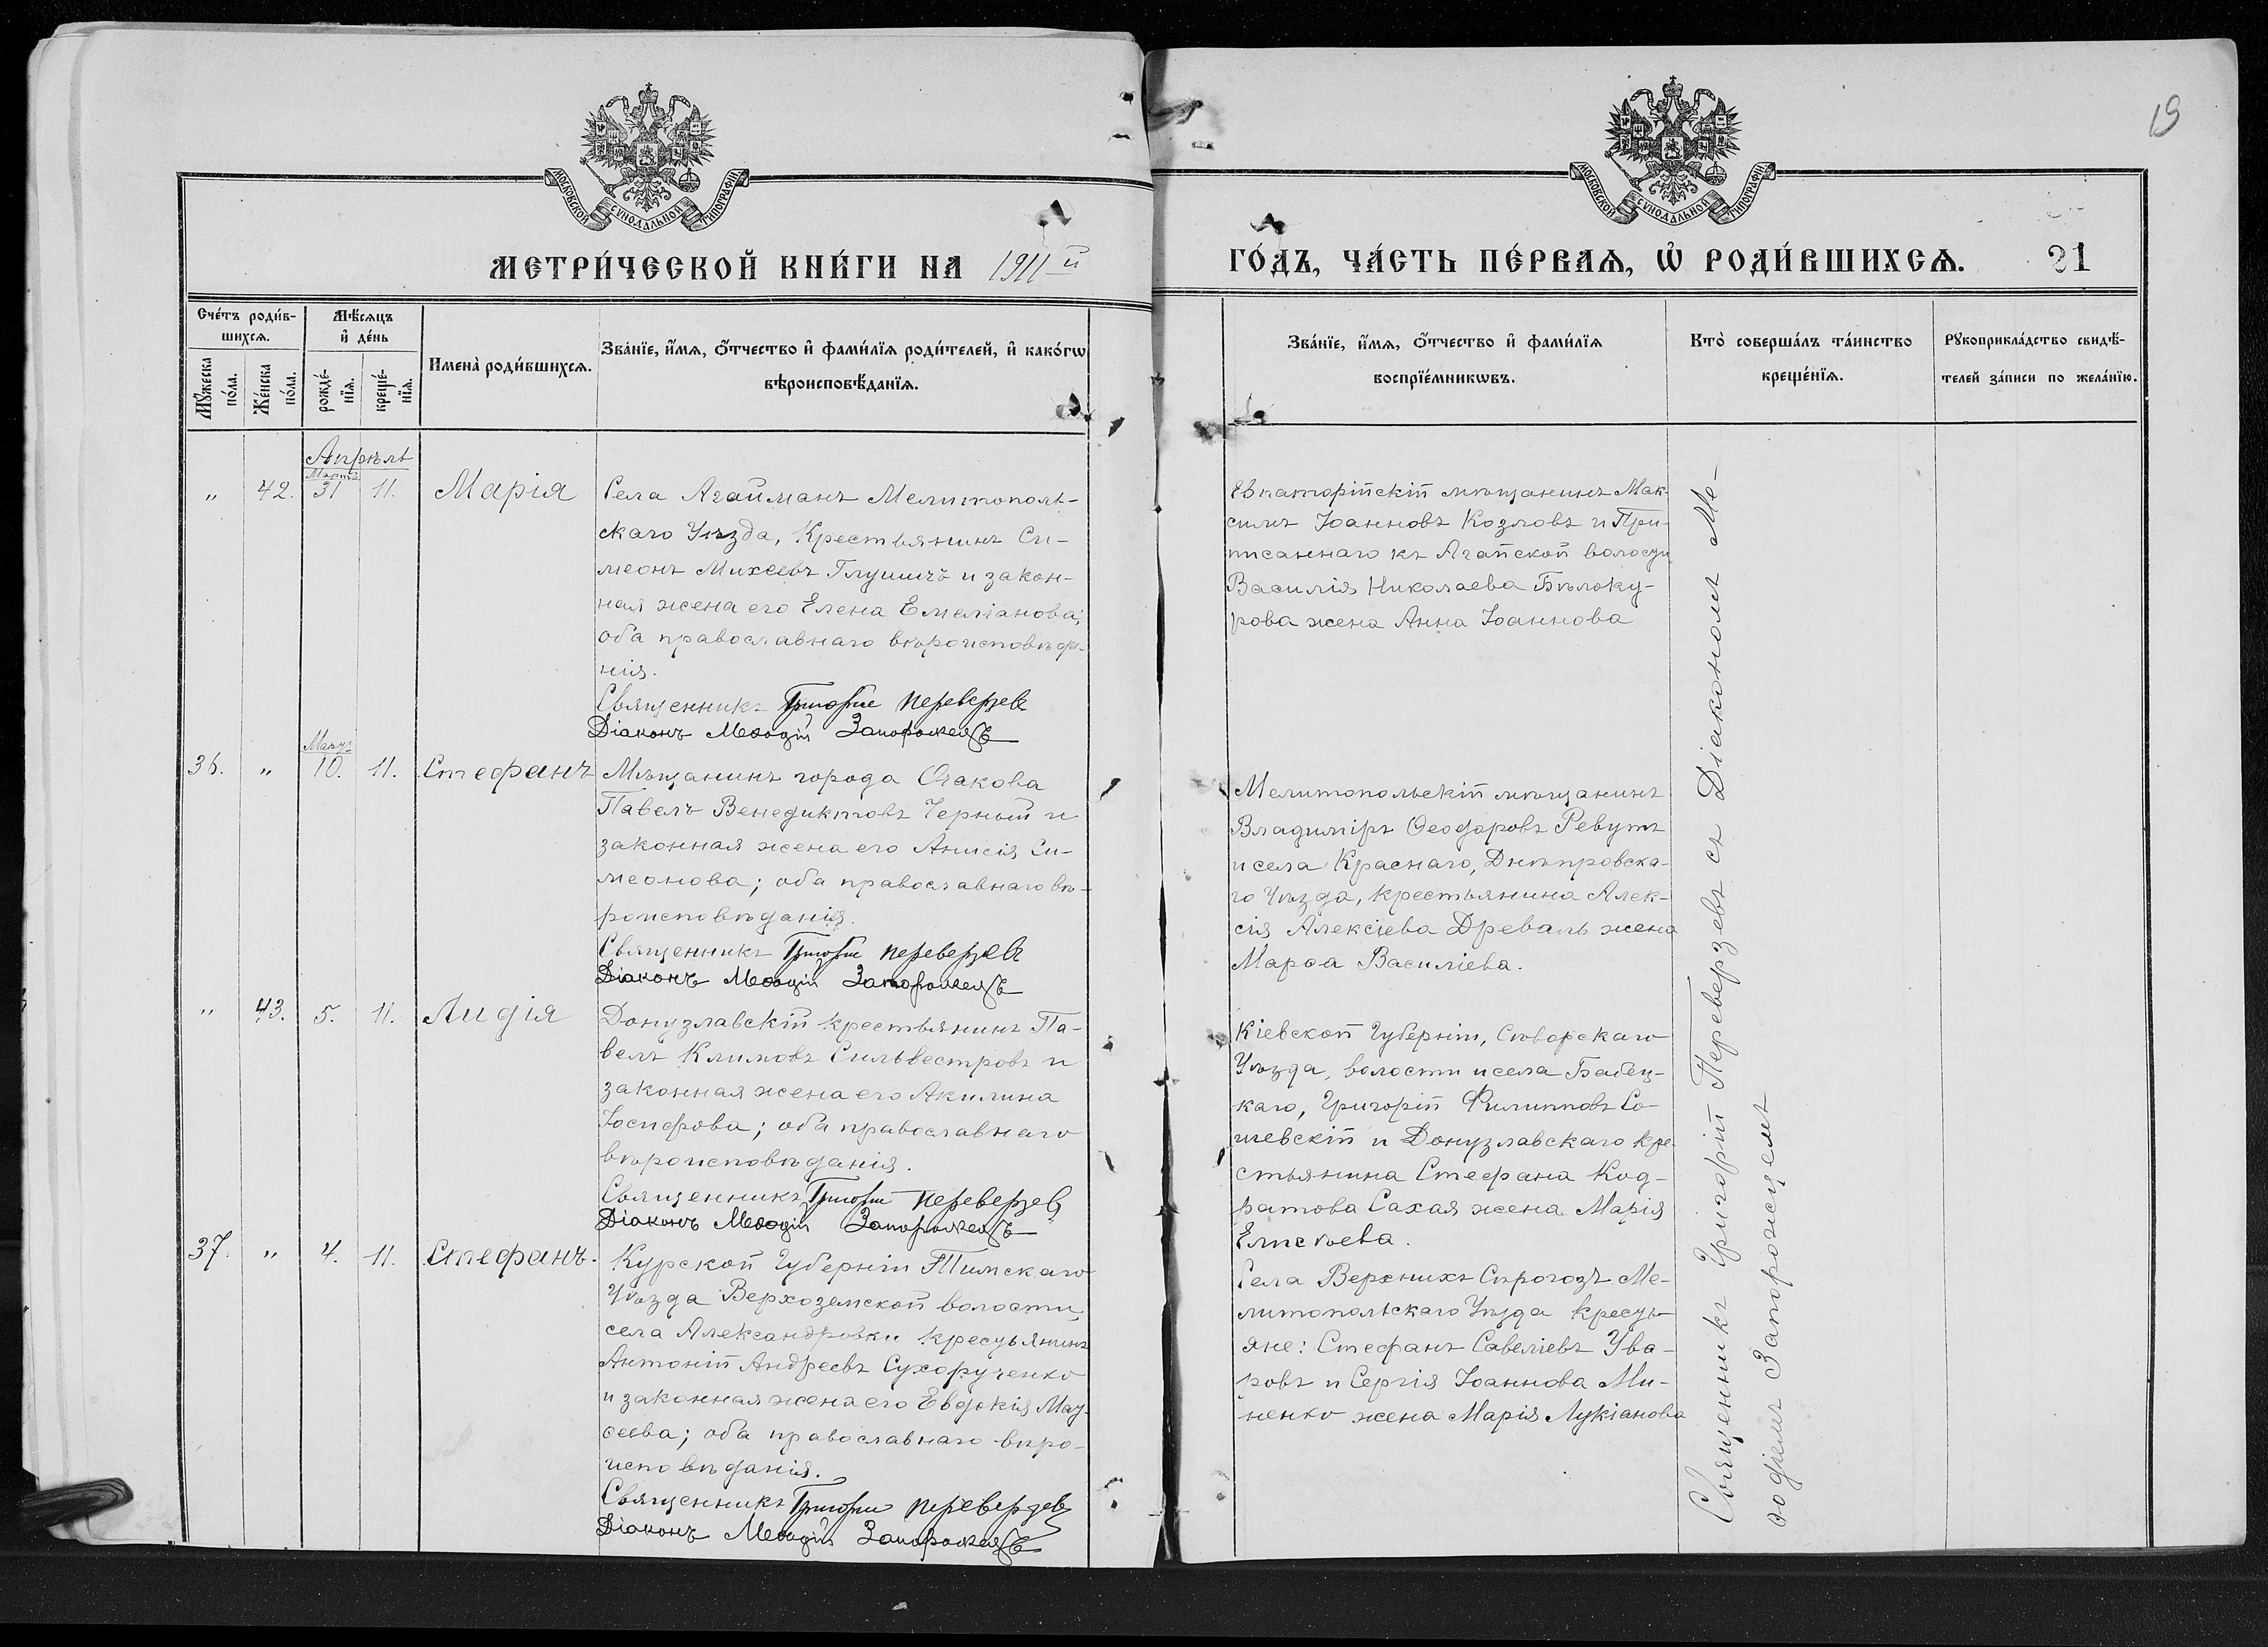 19
МОСКОВСКОЙ СѴНОДАЛЬНОЙ ТИПОГРАФІИ
МОСКОВСКОЙ СѴНОДАЛЬНОЙ ТИПОГРАФІИ
МЕТРИ́ЧЕСКОЙ КНИ́ГИ НА 1911 й
ГО́ДЪ, ЧА́СТЬ ПЕ́РВАѦ, Ѡ҆ РОДИ́ВШИХСѦ. 21
Сче́тъ роди́в-
шихсѧ.
Мѣ́сѧцъ
и҆ де́нь
Мꙋ́жеска
по́ла.
Же́нска
по́ла.
рожде́-
нїѧ.
креще́-
нїѧ.
Имена̀ роди́вшихсѧ.
Зва́нїе, и҆́мѧ, ѻ҆́тчество и҆ фами́лїѧ роди́телей, и҆ како́гѡ
вѣроисповѣ́данїѧ.
Зва́нїе, и҆́мѧ, ѻ҆́тчество и҆ фами́лїѧ
воспрїе́мникѡвъ.
Кто̀ соверша́лъ та́инство
креще́нїѧ.
Рꙋкоприкла́дство свидѣ́-
телей за́писи по жела́нїю.
Апрѣль
Марта
" 42. 31 11. Марія
Села Агайманъ Мелитополь-
скаго Уѣзда, Крестьянинъ Си-
меонъ Михеевъ Глушичъ и закон-
ная жена его Елена Емеліанова;
оба православнаго вѣроисповѣда-
нія.
Священникъ Григорій Переверзевъ
Діаконъ Меѳодій Запорожецъ
Евпаторійскій мѣщанинъ Мак-
симъ Іоанновъ Козловъ и При-
писаннаго къ Агайской волости
Василія Николаева Бѣлоку-
рова жена Анна Іоаннова
Марта
36. " 10. 11. Стефанъ
Мѣщанинъ города Очакова
Павелъ Венедиктовъ Черный и
законная жена его Анисія Си-
меонова; оба православнаго вѣ-
роисповѣданія.
Священникъ Григорій Переверзевъ
Діаконъ Меѳодій Запорожецъ
Мелитопольскій мѣщанинъ
Владиміръ Ѳеодоровъ Ревутъ
и села Краснаго, Днѣпровска-
го Уѣзда, крестьянина Алек-
сія Алексіева Древаль жена
Марѳа Василіева.
" 43. 5. 11. Лидія
Донузлавскій крестьянинъ Па-
велъ Климовъ Сильвестровъ и
законная жена его Акилина
Іосифова; оба православнаго
вѣроисповѣданія.
Священникъ Григорій Переверзевъ
Діаконъ Меѳодій Запорожецъ
Кіевской Губерніи,
Уѣзда, волости и села
каго, Григорій Филипповъ Со-
шевскій и Донузлавскаго кре-
стьянина Стефана Код-
ратова Сахая жена Марія
37. " 4. 11. Стефанъ.
Курской Губерніи Тимскаго
Уѣзда Верхоземской волости,
села Александровки крестьянинъ
Антоній Андреевъ Сухорученко
и законная жена его Евдокія
оба православнаго вѣро-
исповѣданія.
Священникъ Григорій Переверзевъ
Діаконъ Меѳодій Запорожецъ
Села Верхнихъ Сѣрогозъ Ме-
литопольскаго Уѣзда кресть-
яне: Стефанъ Савеліевъ Ува-
ровъ и Сергія Іоаннова Ми-
ненко жена Марія Лукіанова
Священникъ Григорій Переверзевъ съ Діакономъ Ме-
ѳодіемъ Запорожцемъ